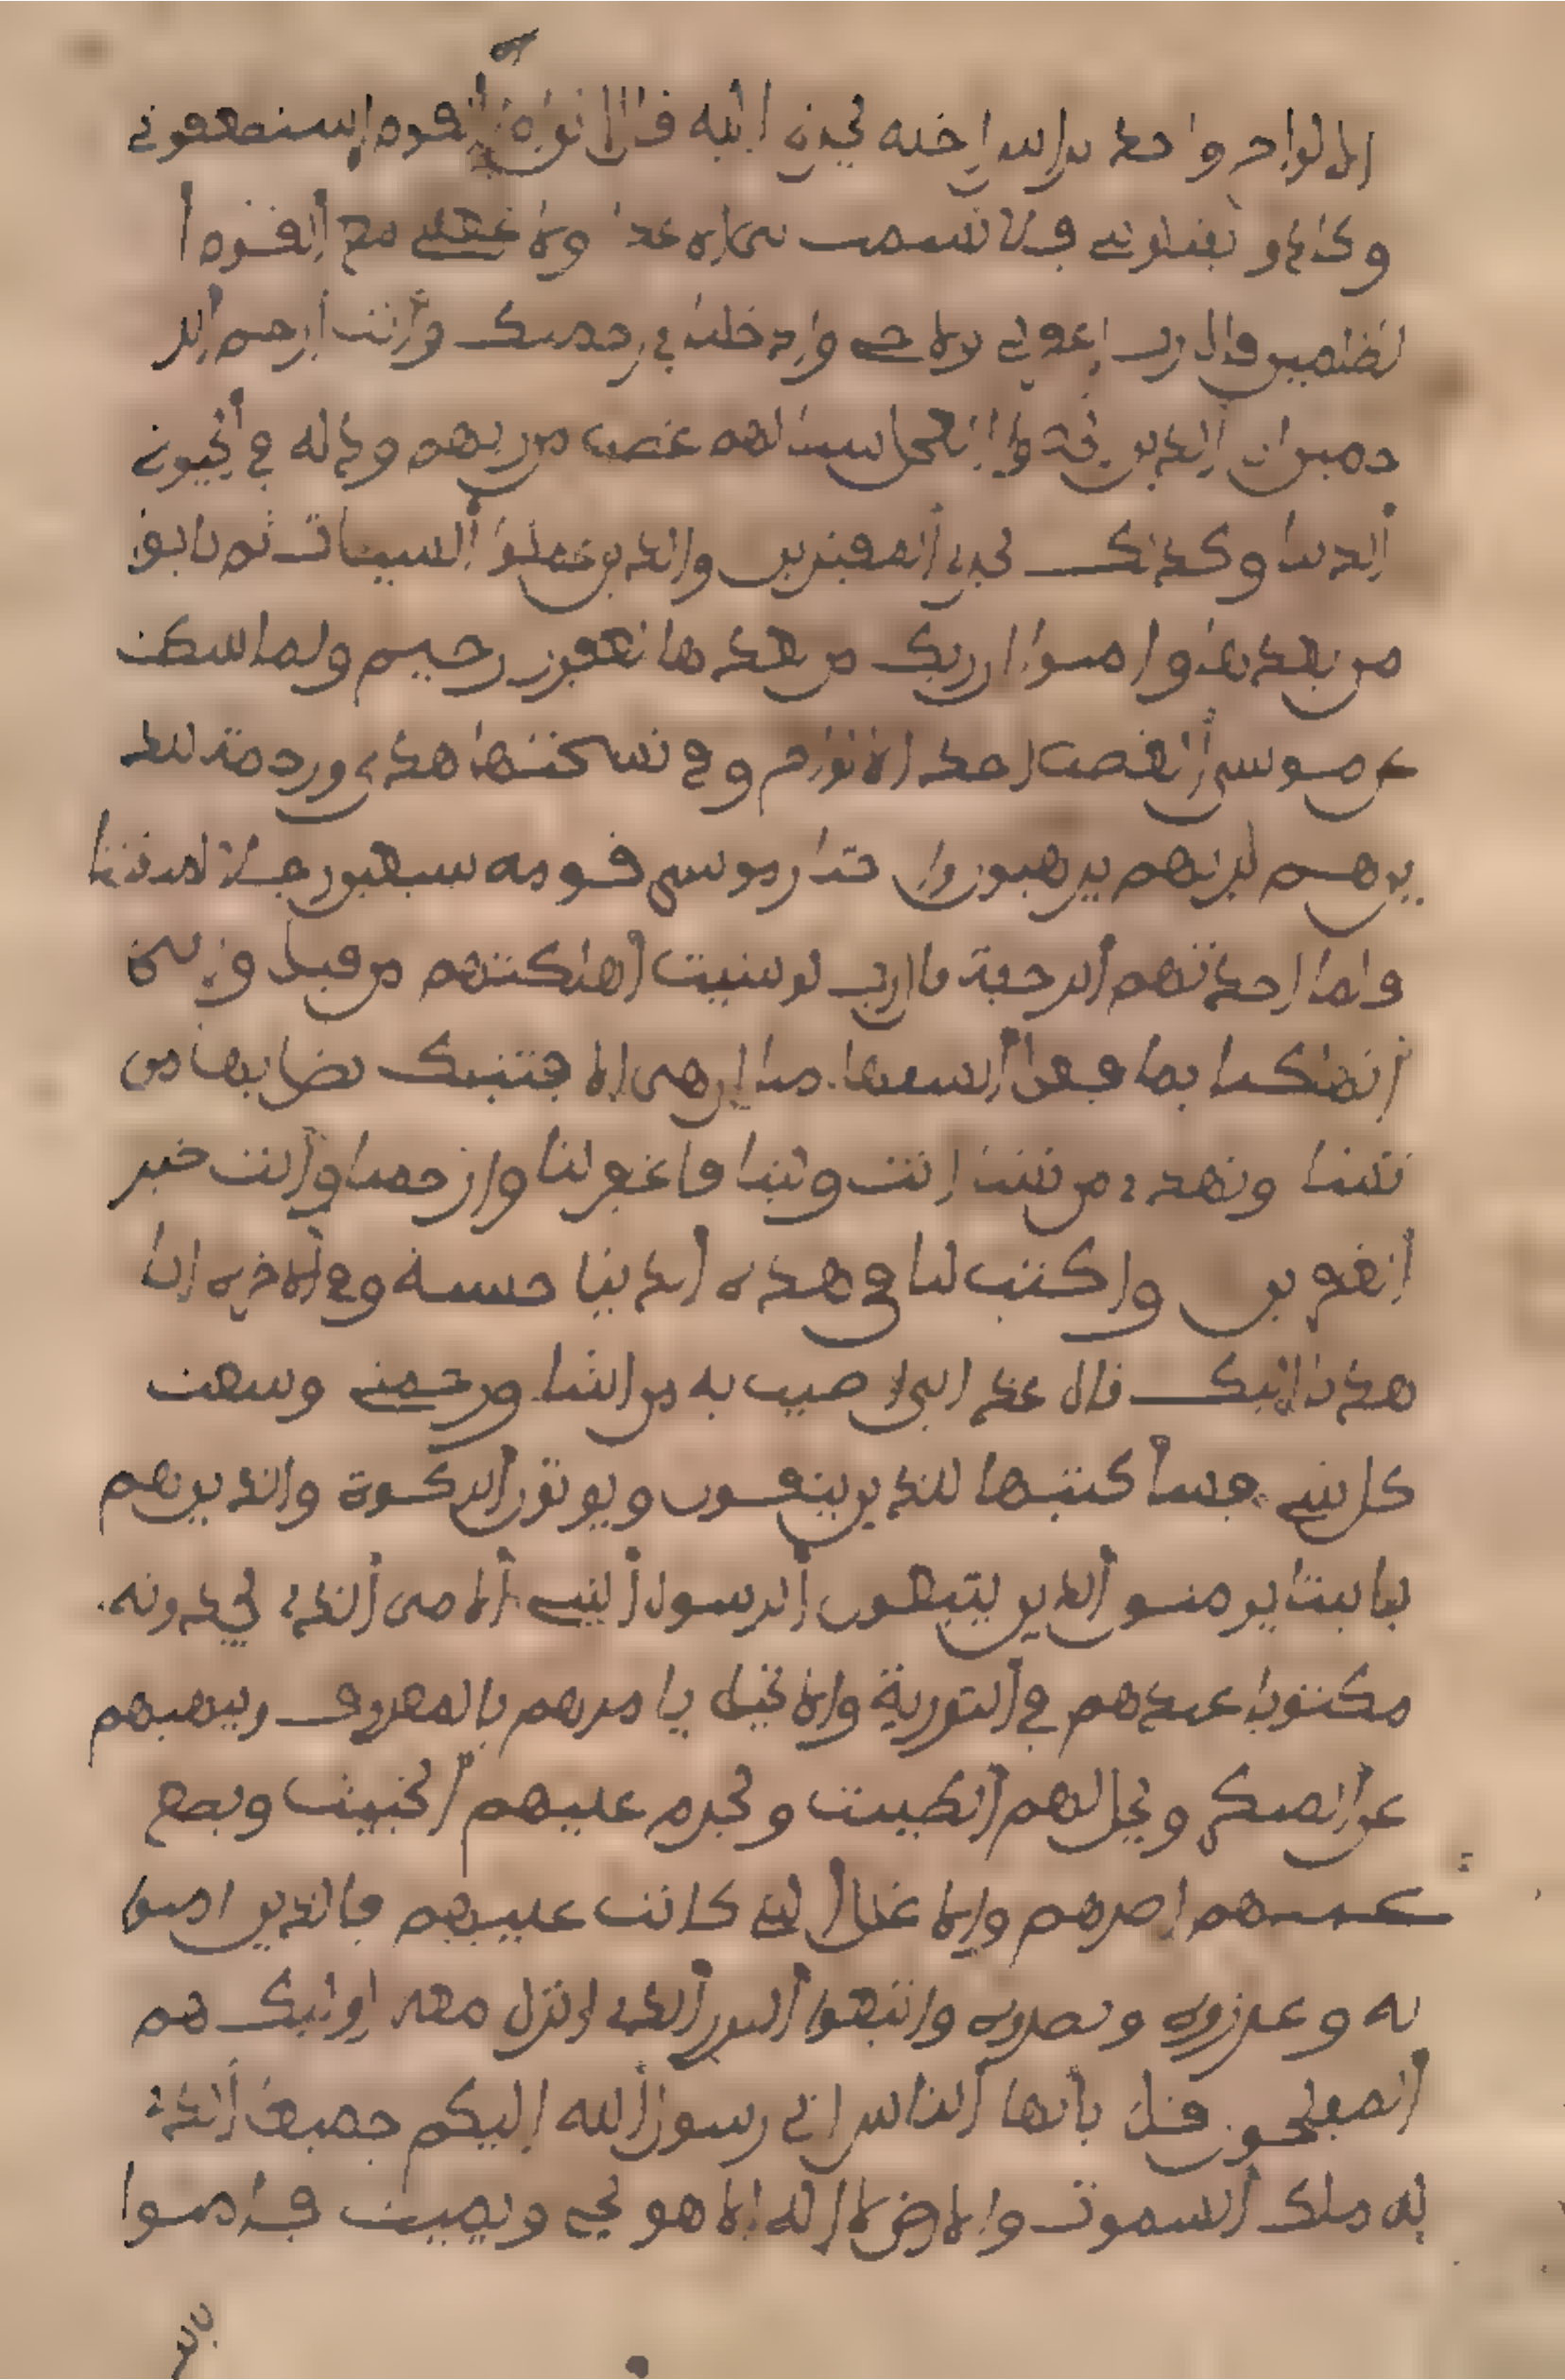 الالواح واخذ براس اخيه يجره اليه قال ابن ام ان القوم استضعفوني
وكادوا يقتلونني فلا تشمت بي الاعداء ولا تجعلني مع القوم ا
لظلمين قال رب اغفر لي ولاخي وادخلنا في رحمتك وانت ارحم الر
حمين ان الذين اتخذوا العجل سينالهم غضب من ربهم وذلة في الحيوة
الدنيا وكذلك نجزي المفترين والذين عملوا السيات ثم تابوا
من بعدها وامنوا ان ربك من بعدها لغفور رحيم ولما سكت
عن موسى الغضب اخذ الالواح وفي نسختها هدى ورحمة للذ
ين هم لربهم يرهبون واختار موسى قومه سبعين رجلا لميقتنا
فلما اخذتهم الرجفة قال رب لو شيت اهلكتهم من قبل وايي
اتهلكنا بما فعل السفها منا ان هي الا فتنتك تضل بها من
تشا وتهدي من تشا انت ولينا فاغفر لنا وارحمنا وانت خير
الغفرين واكتب لنا في هذه الدنيا حسنة وفي الاخرة انا
هدنا اليك قال عذابي اصيب به من اشا ورحمتي وسعت
كل شي فسأكتبها للذين يتقون ويوتون الزكوة والذين هم
بايتنا يومنون الذين يتبعون الرسول النبي الامي الذي يجدونه
مكتوبا عندهم في التورية والانجيل يامرهم بالمعروف وينهيهم
عن المنكر ويحل لهم الطيبت ويحرم عليهم الخبيث ويضع
عنهم اصرهم والاغلل التي كانت عليهم فالذين امنوا
به وعزروه ونصروه واتبعوا النور الذي انزل معه اوليك هم
المفلحون قل يأيها الناس اني رسول الله اليكم جميعا الذي
له ملك السموت والارض لا اله الا هو يحي ويميت فامنوا